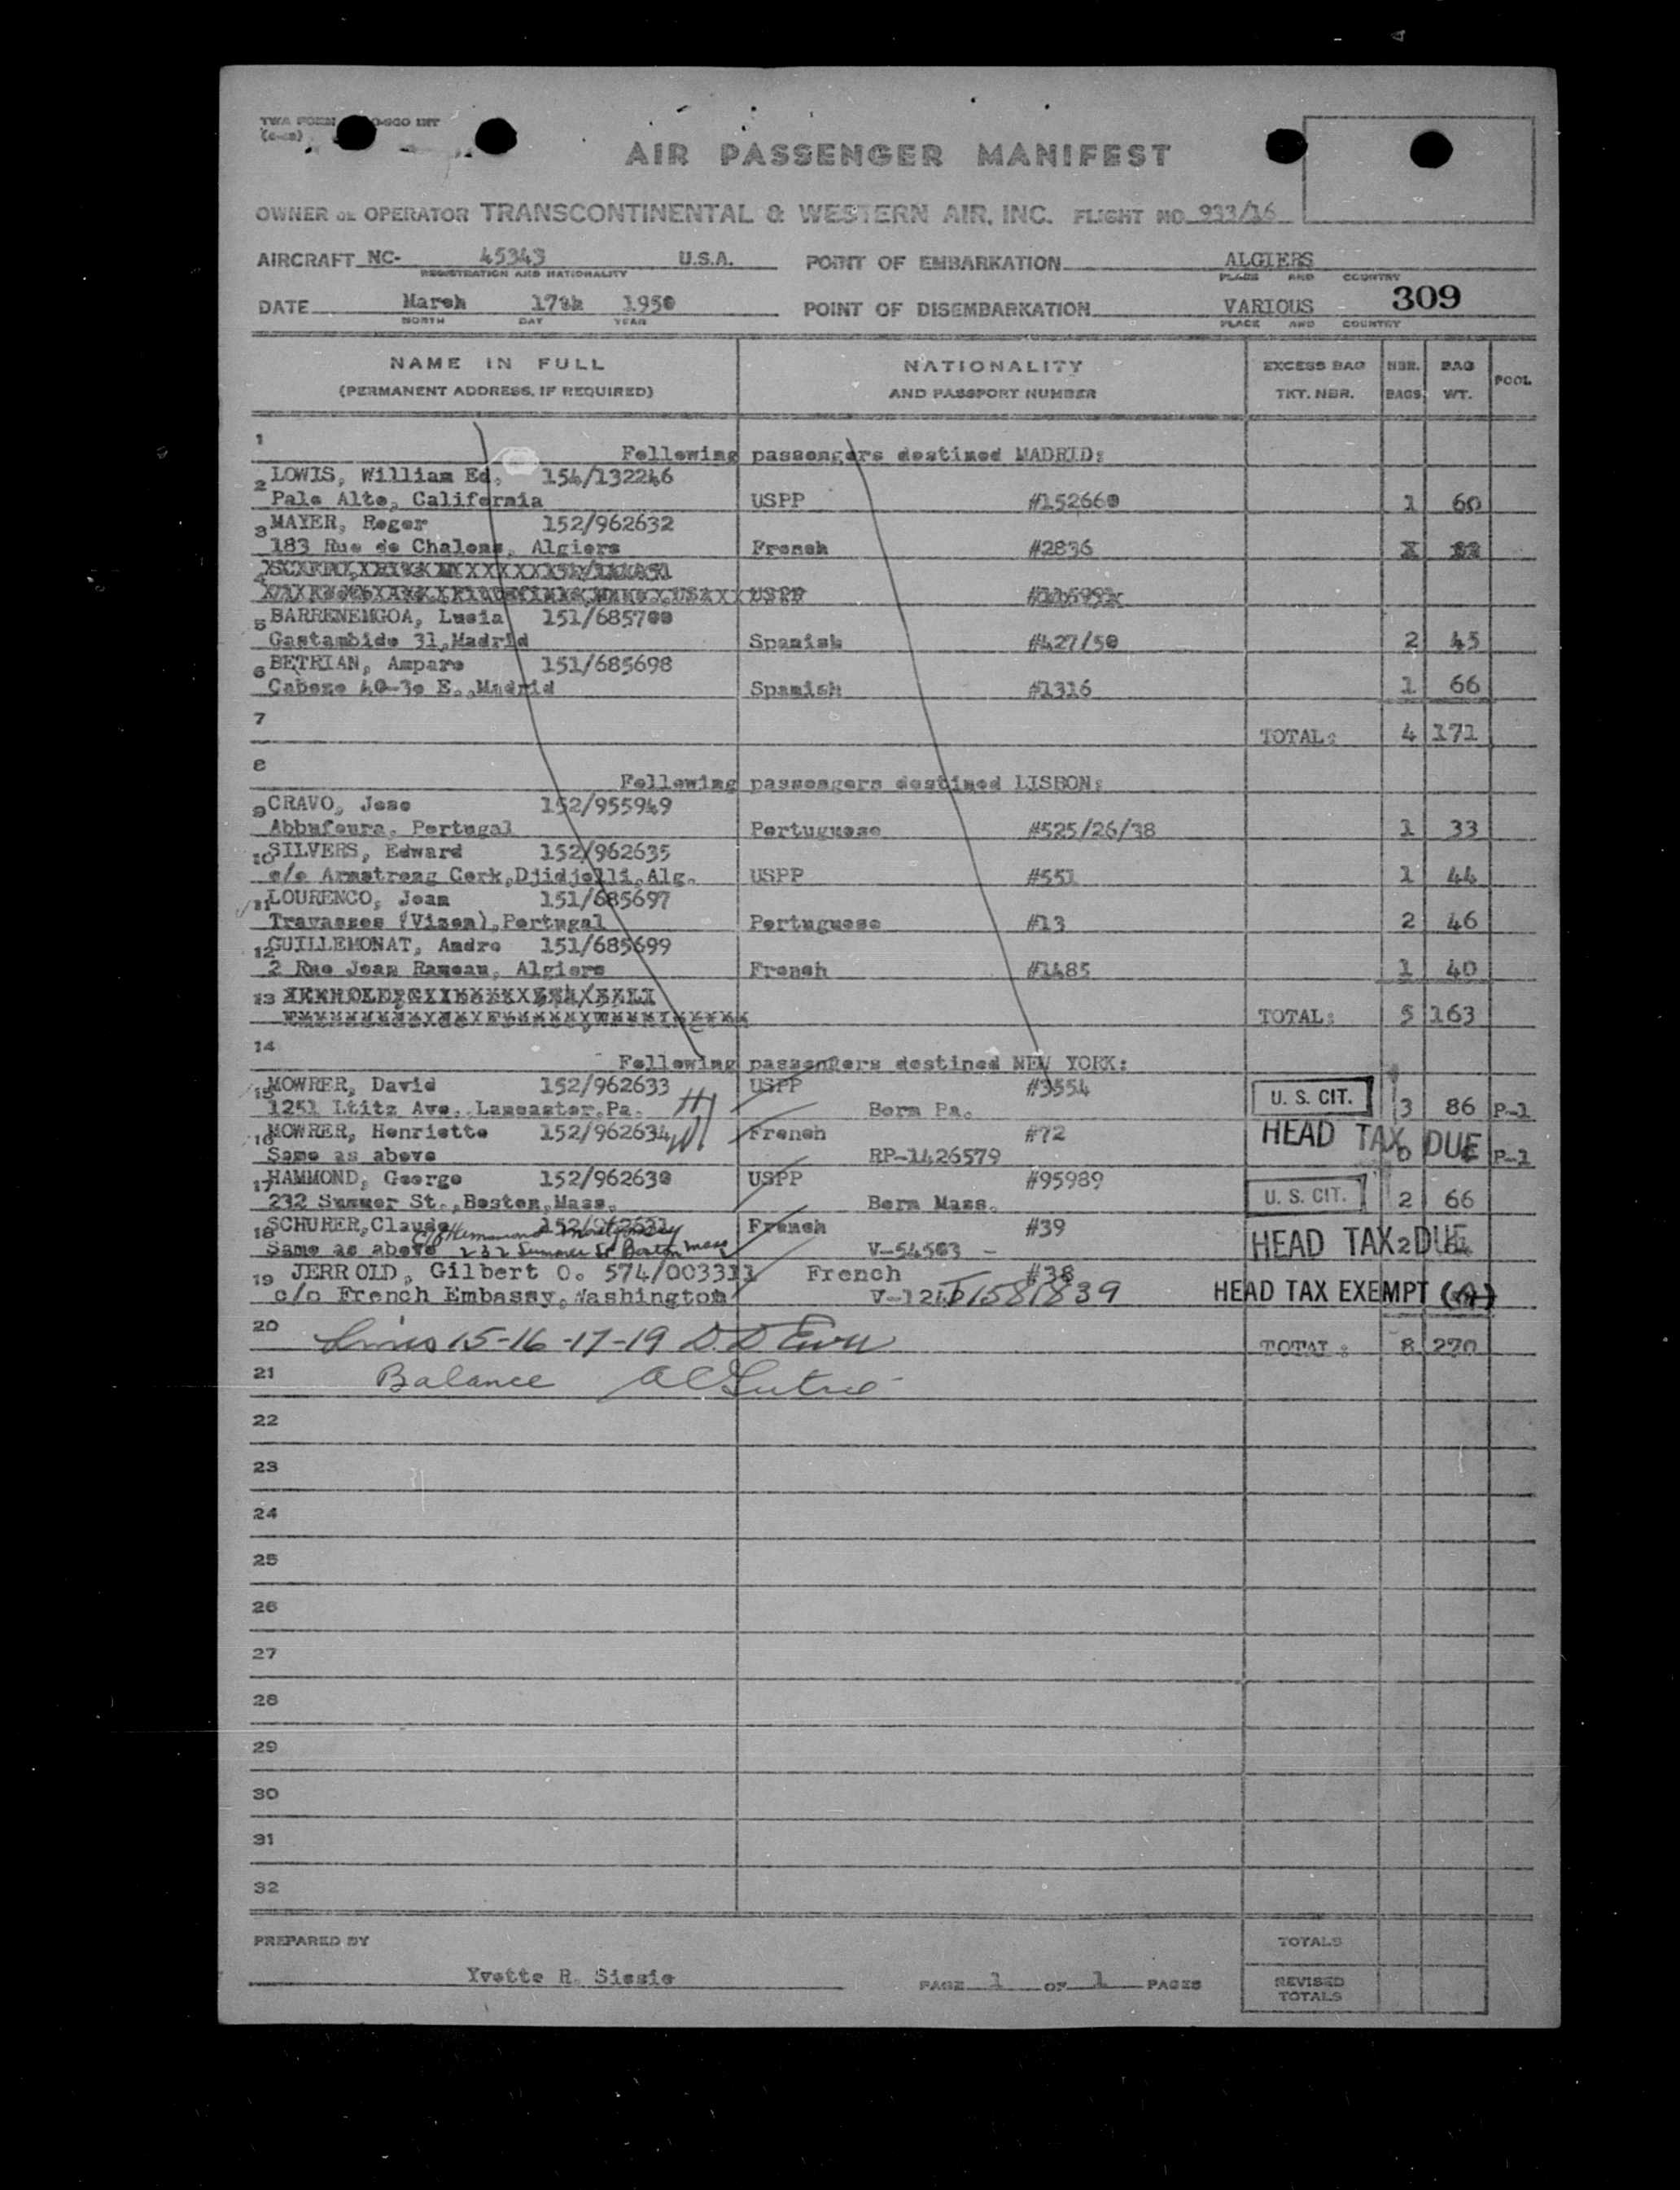 TWA FORM
AIR PASSENGER MANIFEST
OWNER OR OPERATOR TRANSCONTINENTAL & WESTERN AIR, INC. FLIGHT NO. 933/16
AIRCRAFT NC- 45343 U.S.A. POINT OF EMBARKATION ALGIERS
REGISTRATION AND NATIONALITY PLACE AND COUNTRY
309
DATE March 17th 1950 POINT OF DISEMBARKATION VARIOUS
MONTH DAY YEAR PLACE AND COUNTRY
NAME IN FULL NATIONALITY EXCESS BAG NBR. BAG POOL
(PERMANENT ADDRESS, IF REQUIRED) AND PASSPORT NUMBER TKT. NBR. BAGS WT.
1 Following passengers destined MADRID:
2 LOWIS, William Ed. 154/132246
Palo Alto, California USPP #152660 1 60
3 MAYER, Roger 152/962632
183 Rue de Chalons, Algiers French #2836
4 USPP
5 BARRENENGOA, Lucia 151/685700
Gastambide 31, Madrid Spanish #427/50 2 45
6 BETRIAN, Amparo 151/685698
Cabeze 40-3o E., Madrid Spanish #1316 1 66
7 TOTAL: 4 171
8 Following passengers destined LISBON:
9 CRAVO, Jose 152/955949
Abbufoura, Portugal Portuguese #525/26/38 1 33
10 SILVERS, Edward 152/962635
c/o Armstrong Cork, Djidjelli, Alg. USPP #551 1 44
11 LOURENCO, Joam 151/685697
Travasses (Vizeu), Portugal Portuguese #13 2 46
12 GUILLEMONAT, Andre 151/685699
2 Rue Jean Rameau, Algiers French #1485 1 40
13
TOTAL: 5 163
14 Following passengers destined NEW YORK:
15 MOWRER, David 152/962633 USPP #3554
1251 Ltitz Ave. Lancaster, Pa. Born Pa. U. S. CIT. 3 86 P-1
16 MOWRER, Henriette 152/962634 French #72 HEAD TAX DUE
Same as above RP-1426579 P-1
17 HAMMOND, George 152/962630 USPP #95989
232 Summer St., Boston, Mass. Born Mass. U. S. CIT. 2 66
18 SCHURER, Claude 152/962631 French #39
Same as above 232 Summer St Boston Mass V-54503 - HEAD TAX DUE 2
19 JERROLD, Gilbert O. 574/003311 French #38
c/o French Embassy, Washington V-124 I1581839 HEAD TAX EXEMPT (A)
20 Lines 15-16-17-19 TOTAL: 8 270
21 Balance
22
23
24
25
26
27
28
29
30
31
32
PREPARED BY TOTALS
Yvette R. Siesie PAGE 1 OF 1 PAGES REVISED
TOTALS